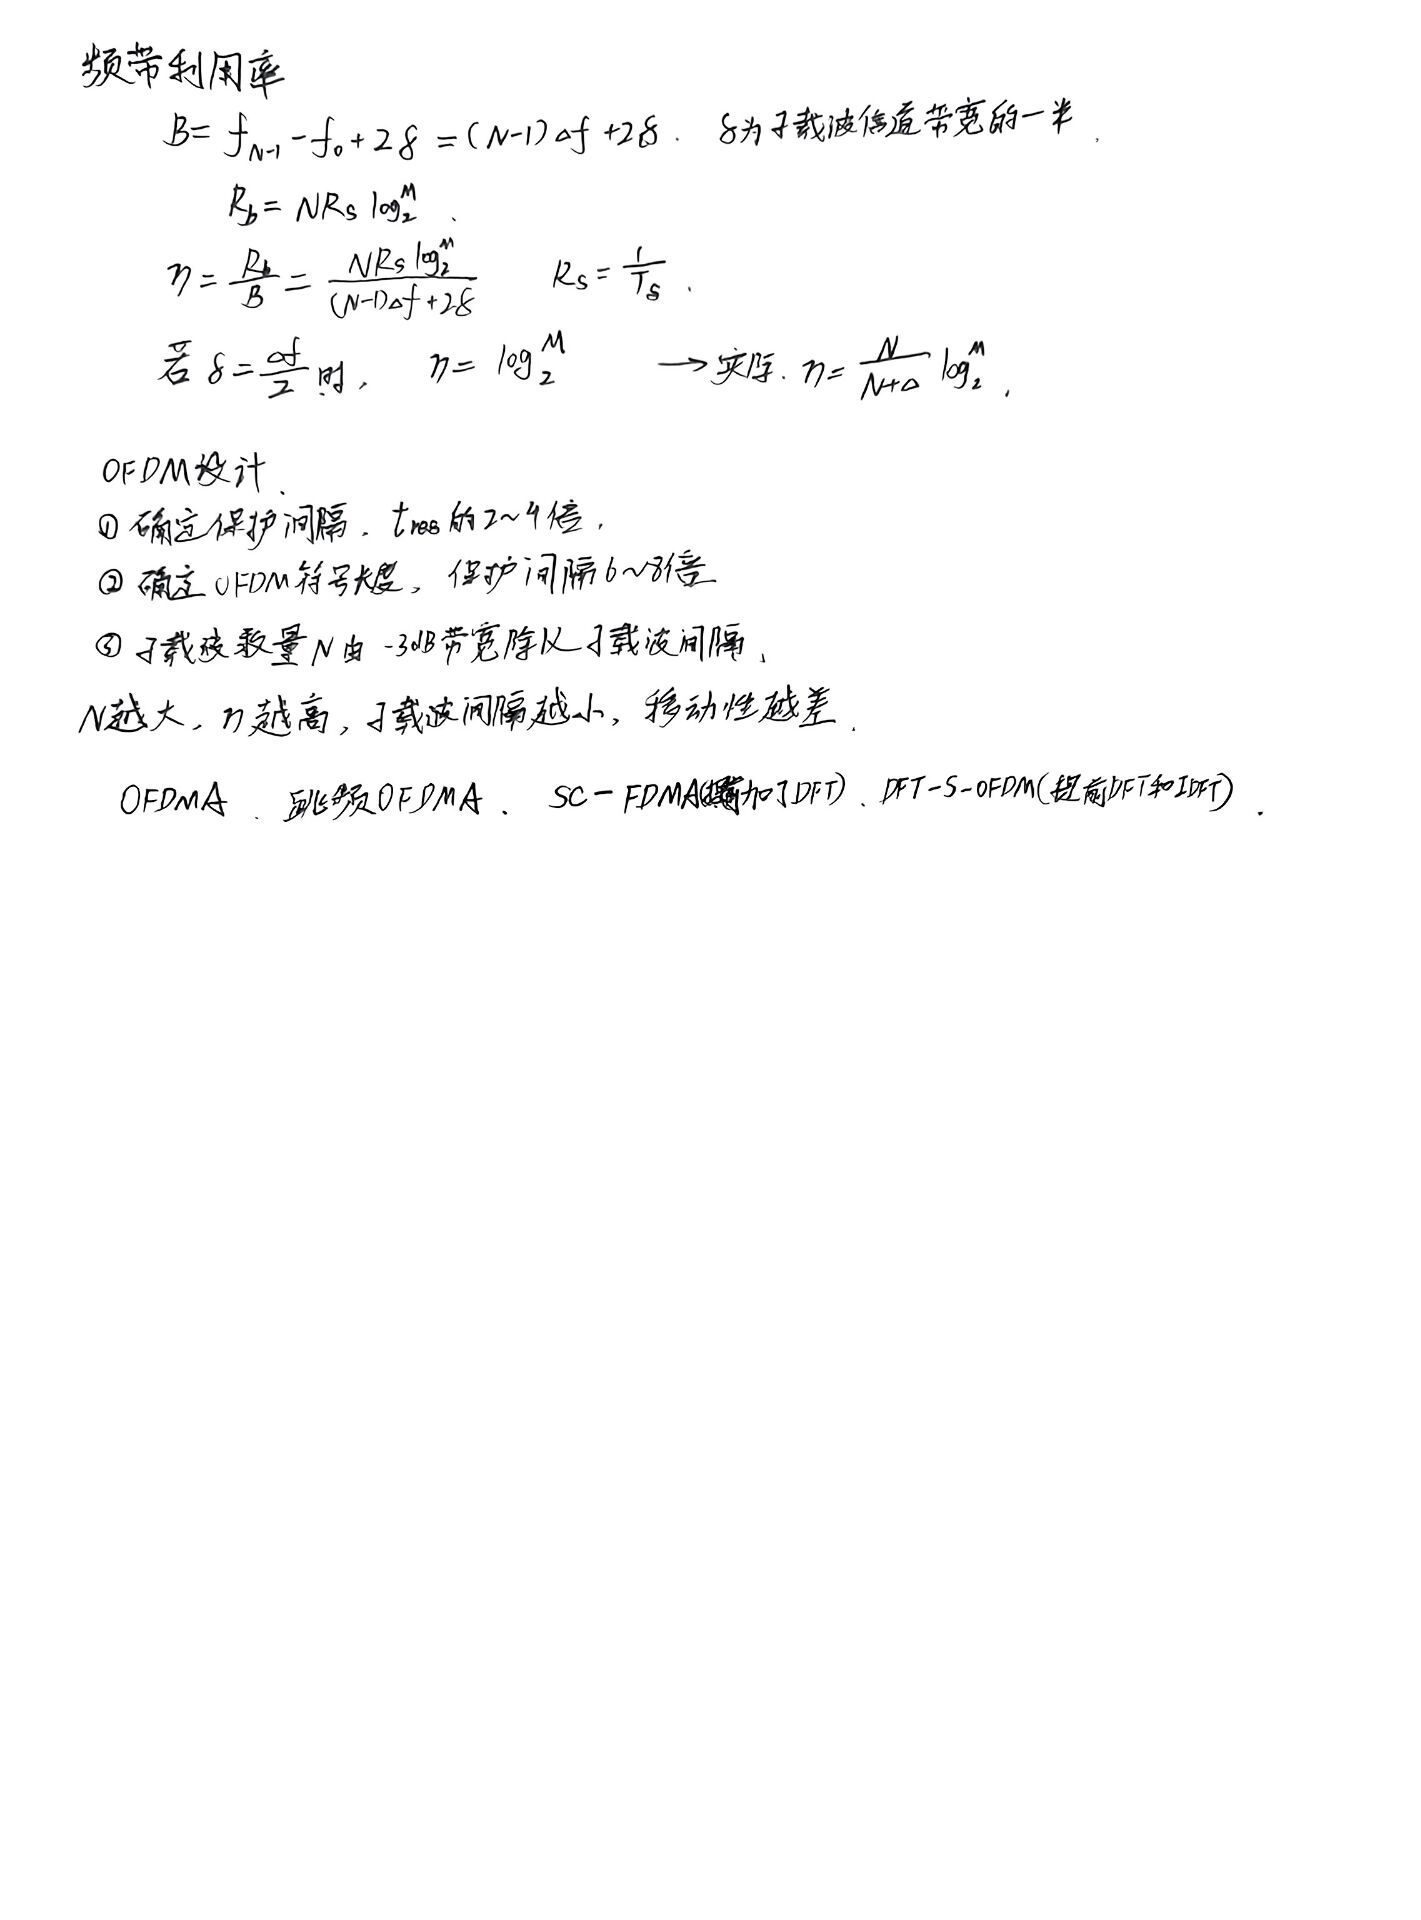 频带利用率
B = f_{N-1} - f_0 + 2δ = (N-1)Δf + 2δ. δ为子载波信道带宽的一半.
R_b = N R_s log_2^M.
η = R_b/B = N R_s log_2^M / ((N-1)Δf + 2δ) R_s = 1/T_s.
若 δ = Δf/2 时, η = log_2^M → 实际. η = N/(N+Δ) log_2^M.
OFDM设计.
① 确定保护间隔. t_{res}的2~4倍.
② 确定OFDM符号长度, 保护间隔6~8倍
③ 子载波数量N由 -3dB带宽除以子载波间隔、
N越大, η越高, 子载波间隔越小, 移动性越差.
OFDMA、跳频OFDMA、SC-FDMA(增加了DFT)、DFT-S-OFDM(提前DFT和IDFT).